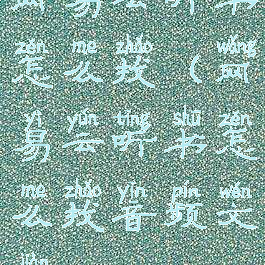 易云听书
zěn me zhǎo wǎng
怎么找（网
yì yún tīng shū zěn
易云听书怎
me zhǎo yīn pín wén
么找音频文
jiàn